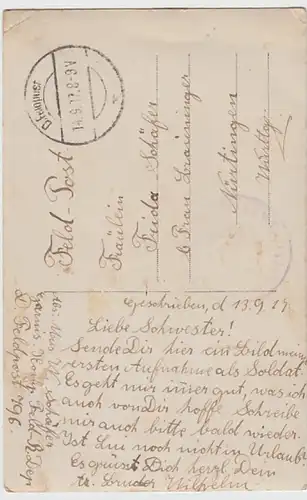 14.9.17. 8-9V
Feld-Post
Fräulein
Frida Schäfer
b Frau
Nürtingen
Württbg.
Geschrieben, d 13.9.17.
Liebe Schwester!
Sende Dir hier ein Bild mein
ersten Aufnahme als Soldat.
Es geht mir immer gut, was ich
auch von Dir hoffe Schreibe
mir auch bitte bald wieder.
Ist Lui noch nicht in Urlaub
Es grüsst Dich herzl. Dein
tr. Bruder Wilhelm
Schäfer
D. Feldpost 796